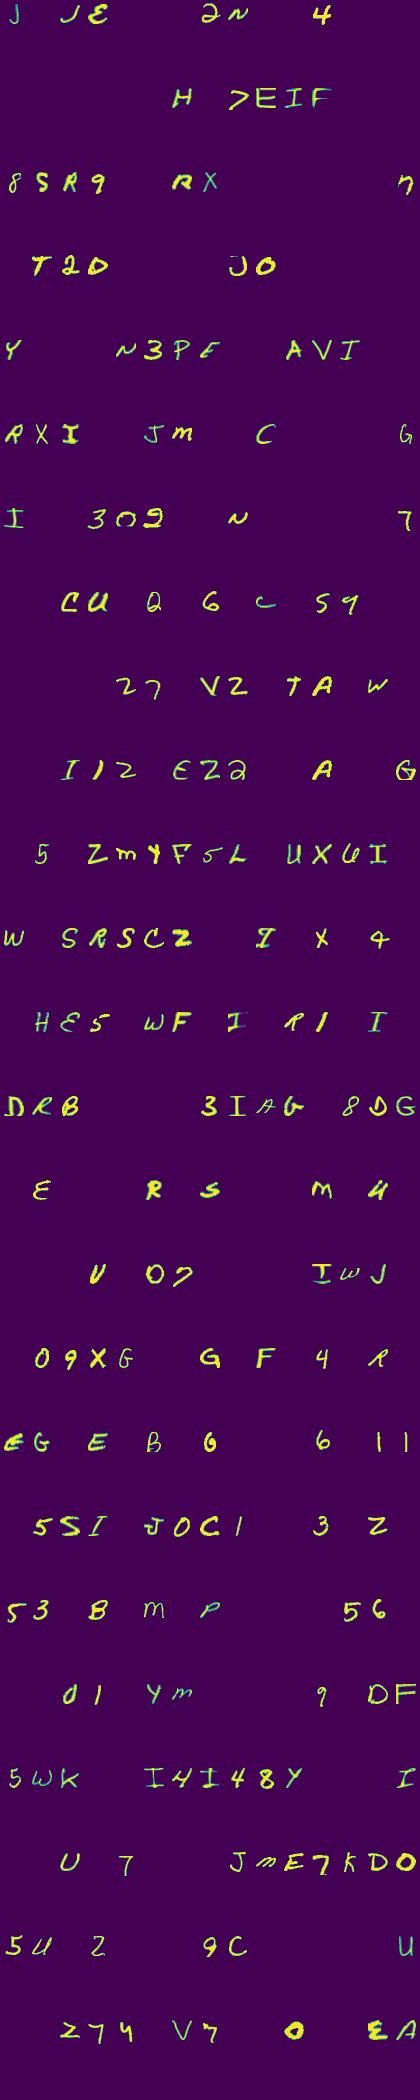 J JE 2N 4
H 7EIF
8SR9 RX 7
T2D JO
Y N3PE AVI
RXI JM C G
I 309 N 7
CU Q 6 C 59
27 VZ TA W
I12 EZ2 A G
5 ZMYF5L UX6I
W SRSCZ I X 4
HE5 WF I R1 I
DRB 3IAG 8DG
E R S M U
V 07 IWJ
09XG G F 4 R
EG E B G 6 11
5SI JOC1 3 Z
53 B M P 56
01 YM 9 DF
5WK I4I48Y I
U 7 JME7KDO
5U Z 9C U
Z74 V7 0 EA